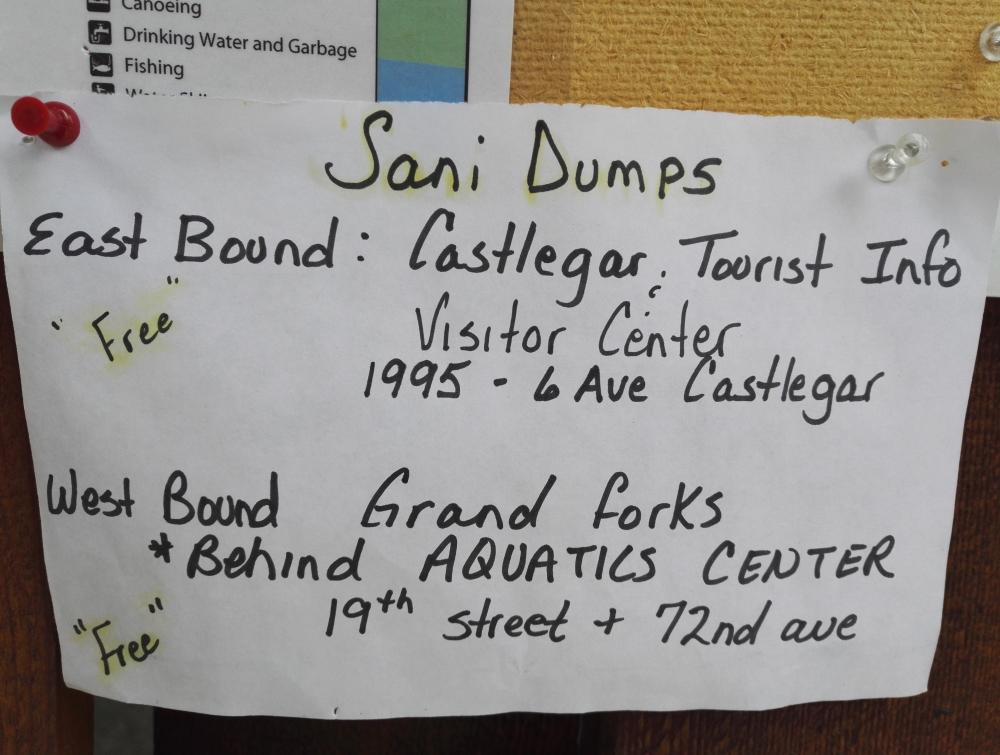 Canoeing
Drinking Water and Garbage
Fishing
Sani Dumps
East Bound: Castlegar, Tourist Info
"Free"
Visitor Center
1995 - 6 Ave Castlegar
West Bound Grand Forks
*Behind AQUATICS CENTER
19th street + 72nd ave
"Free"